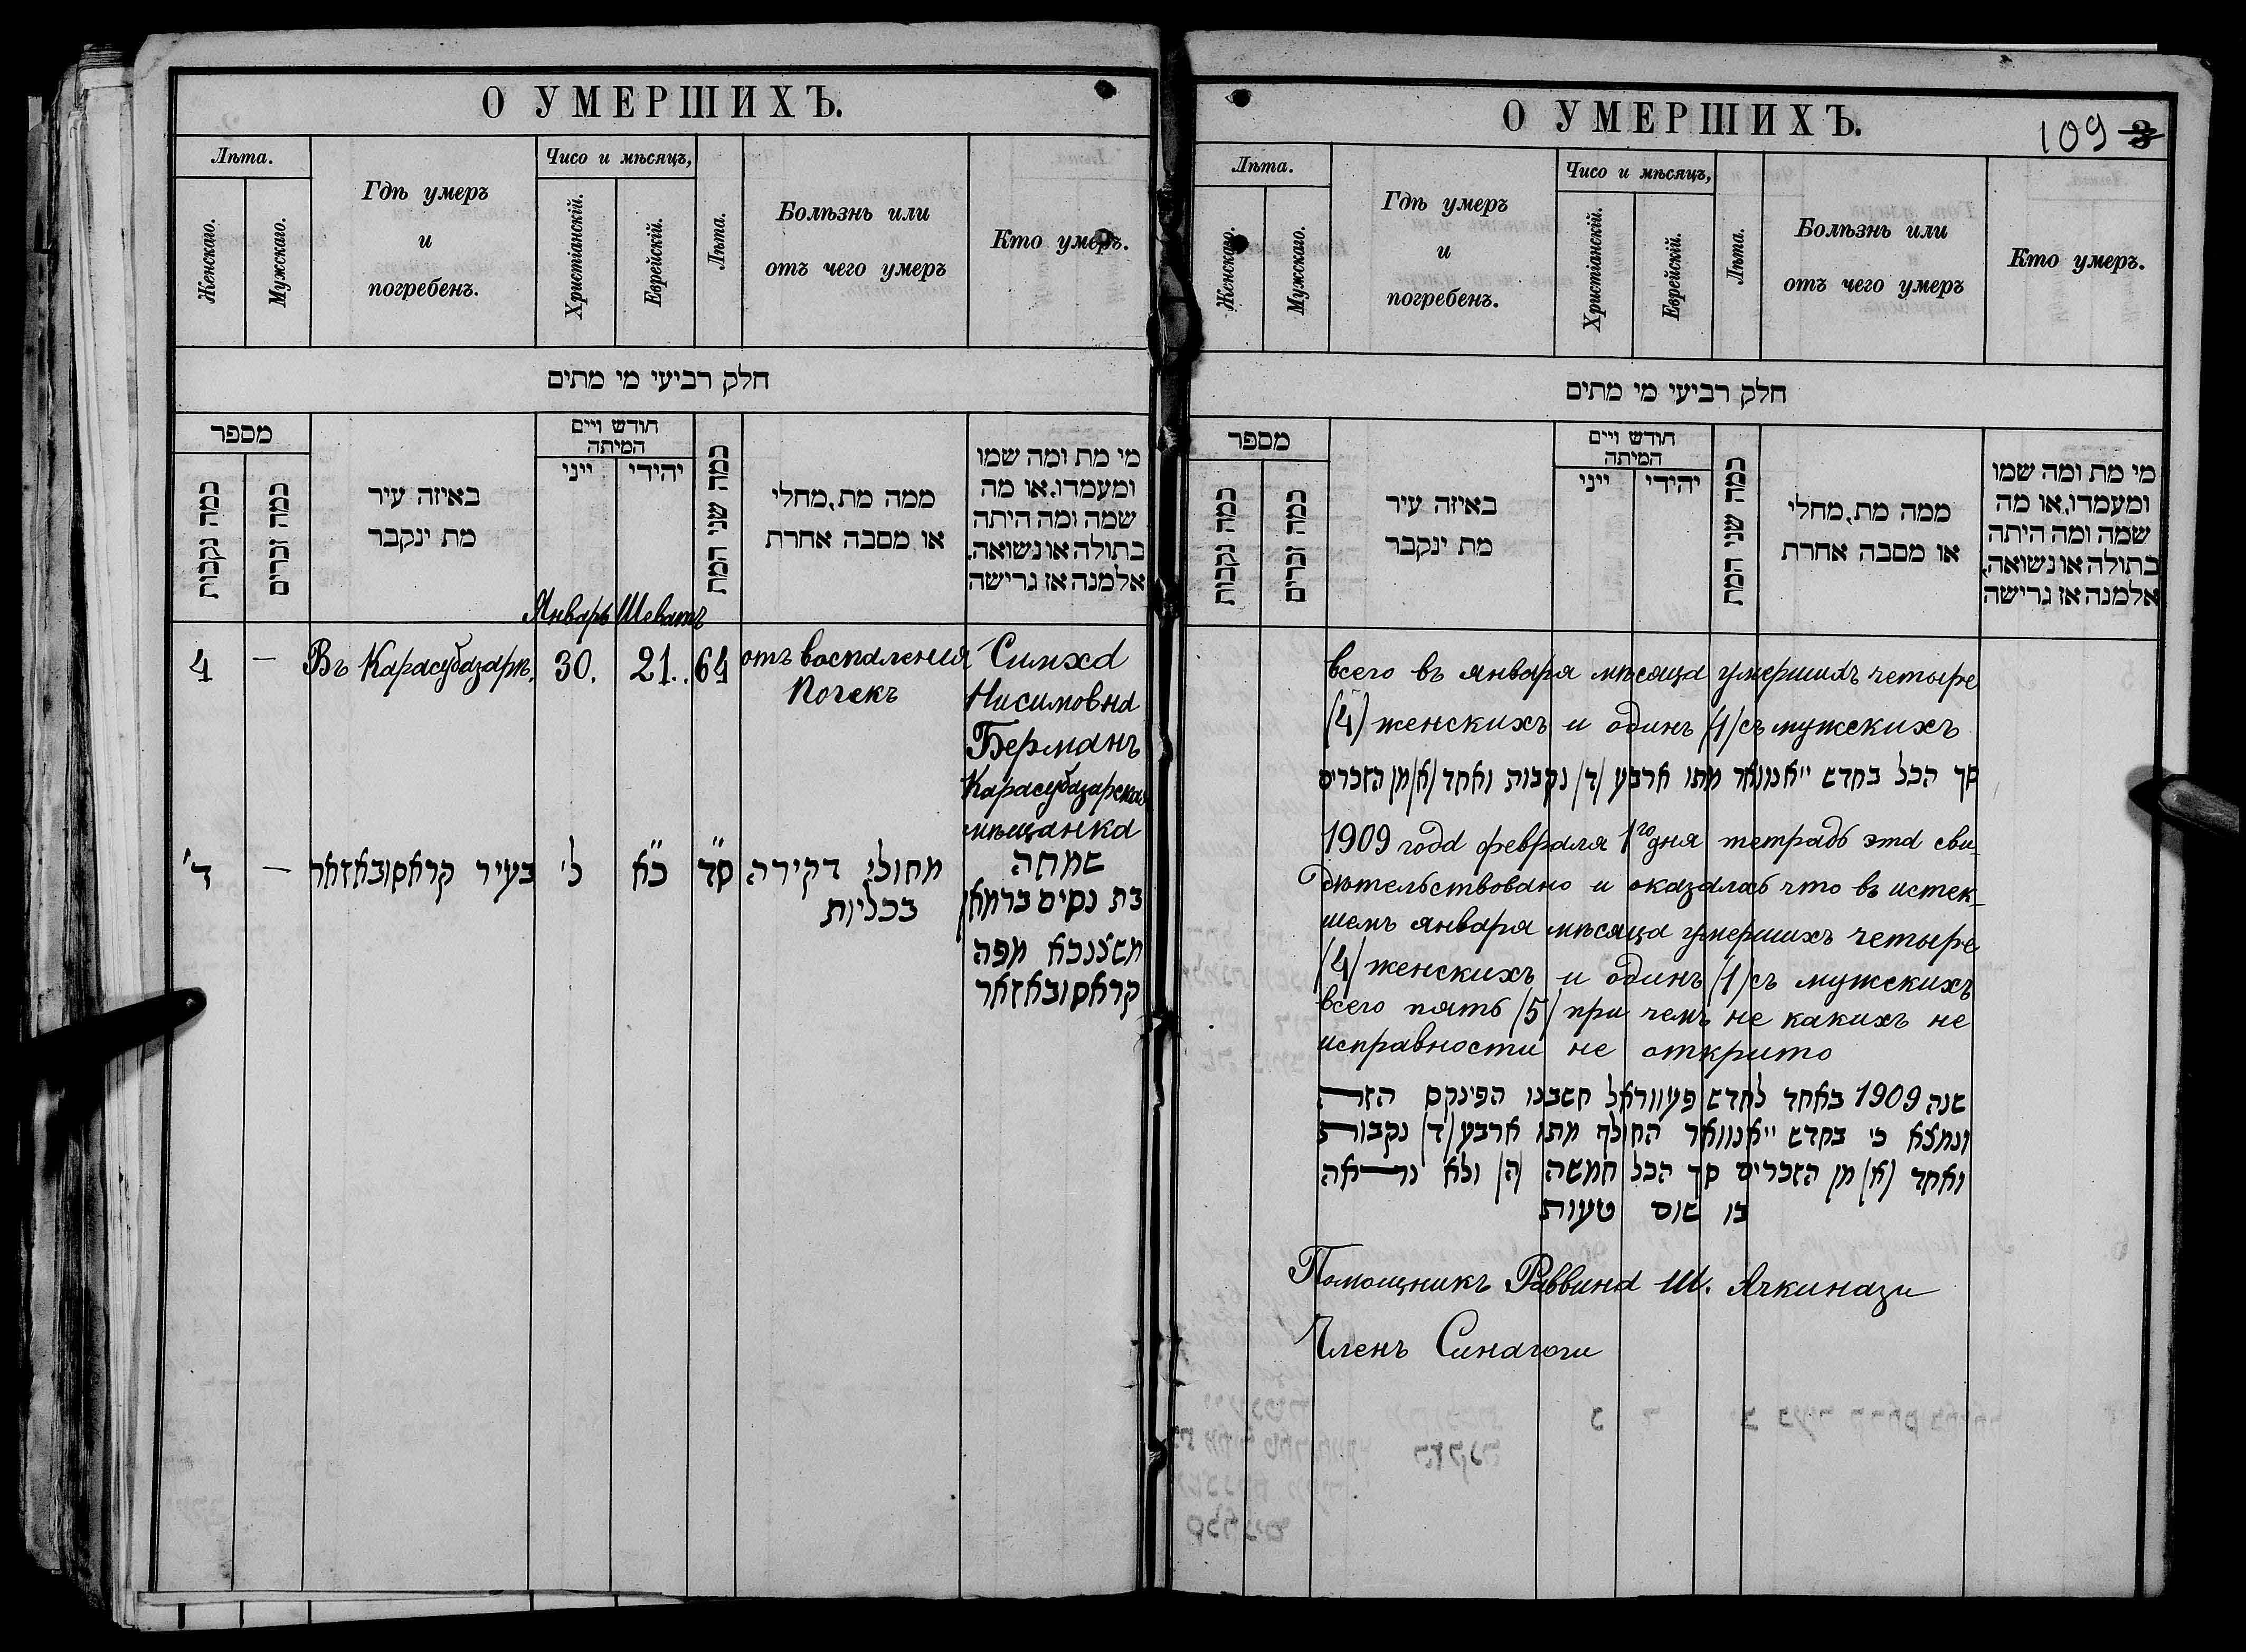 О УМЕРШИХЪ.
Лѣта.
Женскаго.
Мужскаго.
Гдѣ умеръ
и
погребенъ.
Чисо и мѣсяцъ,
Христіанскій.
Еврейскій.
Лѣта.
Болѣзнь или
отъ чего умеръ
Кто умеръ.
חלק רביעי מי מתים
מספר
כמה נקבות
כמה זכרים
באיזה עיר
מת ינקבר
חודש ויים
המיתה
ייני
יהידי
כמה שני המת
ממה מת, מחלי
או מסבה אחרת
מי מת ומה שמו
ומעמדו, או מה
שמה ומה היתה
בתולה או נשואה,
אלמנה אז גרישה
Январь Шеватъ
4 — Въ Карасубазарѣ. 30. 21. 64
отъ воспаления
почекъ
Симха
Нисимовна
Берманъ
Карасубазарская
мѣщанка
ד' — בעיר קראסובאזאר ל' כ"א ס"ד
מחולי דקירה
בכליות
שמחה
בת נסים ברמאן
משצנכא מפה
קראסובאזאר
О УМЕРШИХЪ.
109 3
Лѣта.
Женскаго.
Мужскаго.
Гдѣ умеръ
и
погребенъ.
Чисо и мѣсяцъ,
Христіанскій.
Еврейскій.
Лѣта.
Болѣзнь или
отъ чего умеръ
Кто умеръ.
חלק רביעי מי מתים
מספר
כמה נקבות
כמה זכרים
באיזה עיר
מת ינקבר
חודש ויים
המיתה
ייני
יהידי
כמה שני המת
ממה מת, מחלי
או מסבה אחרת
מי מת ומה שמו
ומעמדו, או מה
שמה ומה היתה
בתולה או נשואה,
אלמנה אז גרישה
всего въ января мѣсяца умершихъ четыре
/4/ женскихъ и одинъ /1/ съ мужскихъ
סך הכל בחדש יאנוואר מתו ארבע /ד/ נקבות ואחד /א/ מן הזכרים
1909 года февраля 1го дня тетрадь эта сви-
дѣтельствовано и оказалась что въ истек-
шемъ января мѣсяца умершихъ четыре
/4/ женскихъ и одинъ /1/ съ мужскихъ
всего пять /5/ при чемъ не какихъ не
исправности не открито
שנה 1909 באחד לחדש פעווראל חשבנו הפינקס הזה
ונמצא כי בחדש יאנוואר החולף מתו ארבע /ד/ נקבות
ואחד /א/ מן הזכרים סך הכל חמשה /ה/ ולא נראה
בו שום טעות
Помощникъ Раввина Ш. Ачкинази
Членъ Синагоги